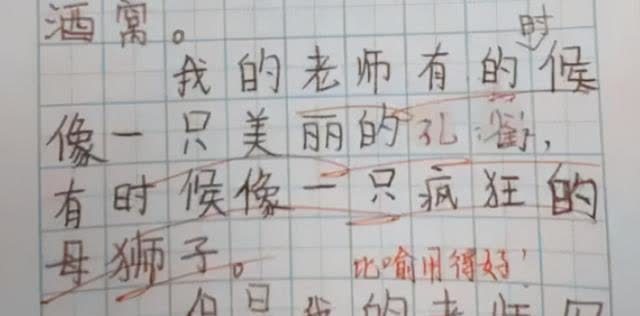 酒窝。
我的老师有的时候
像一只美丽的孔雀，
有时候像一只疯狂的
母狮子。
比喻用得好！
但是我的老师